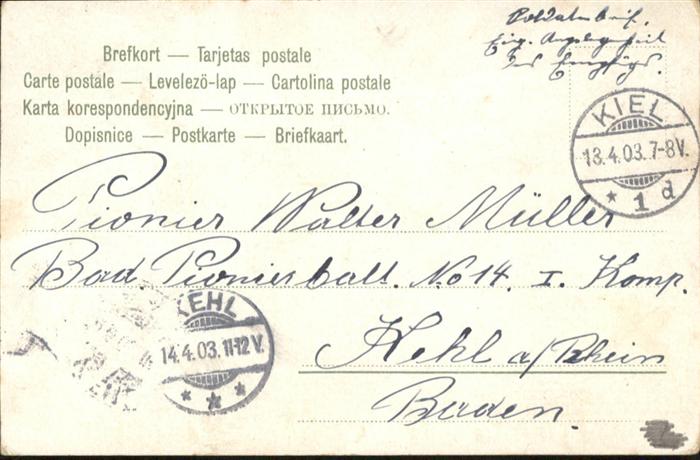 Soldatenbrief.
Eig. Angelegenheit
des Empfgs.
Brefkort — Tarjetas postale
Carte postale — Levelezö-lap — Cartolina postale
Karta korespondencyjna — ОТКРЫТОЕ ПИСЬМО.
Dopisnice — Postkarte — Briefkaart.
KIEL
13.4.03.7-8V.
* 1 d
Pionier Walter Müller
Bad Pionierbatl. No 14. I. Komp.
KEHL
14.4.03.11-12V.
* * *
Kehl a/Rhein
Baden.